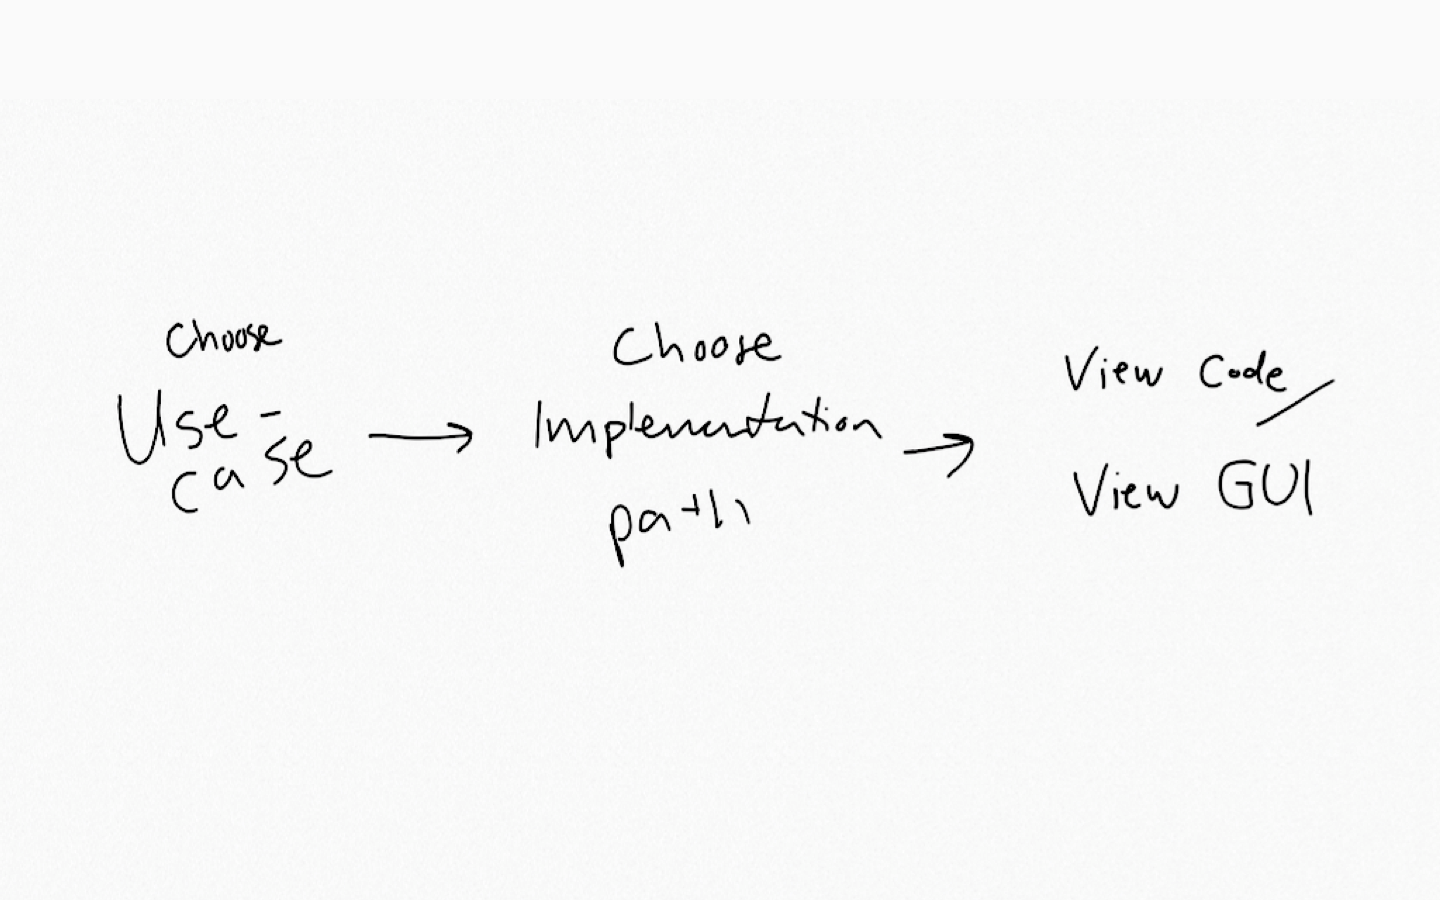 Choose
Use-
case
Choose
Implementation
path
View Code/
View GUI